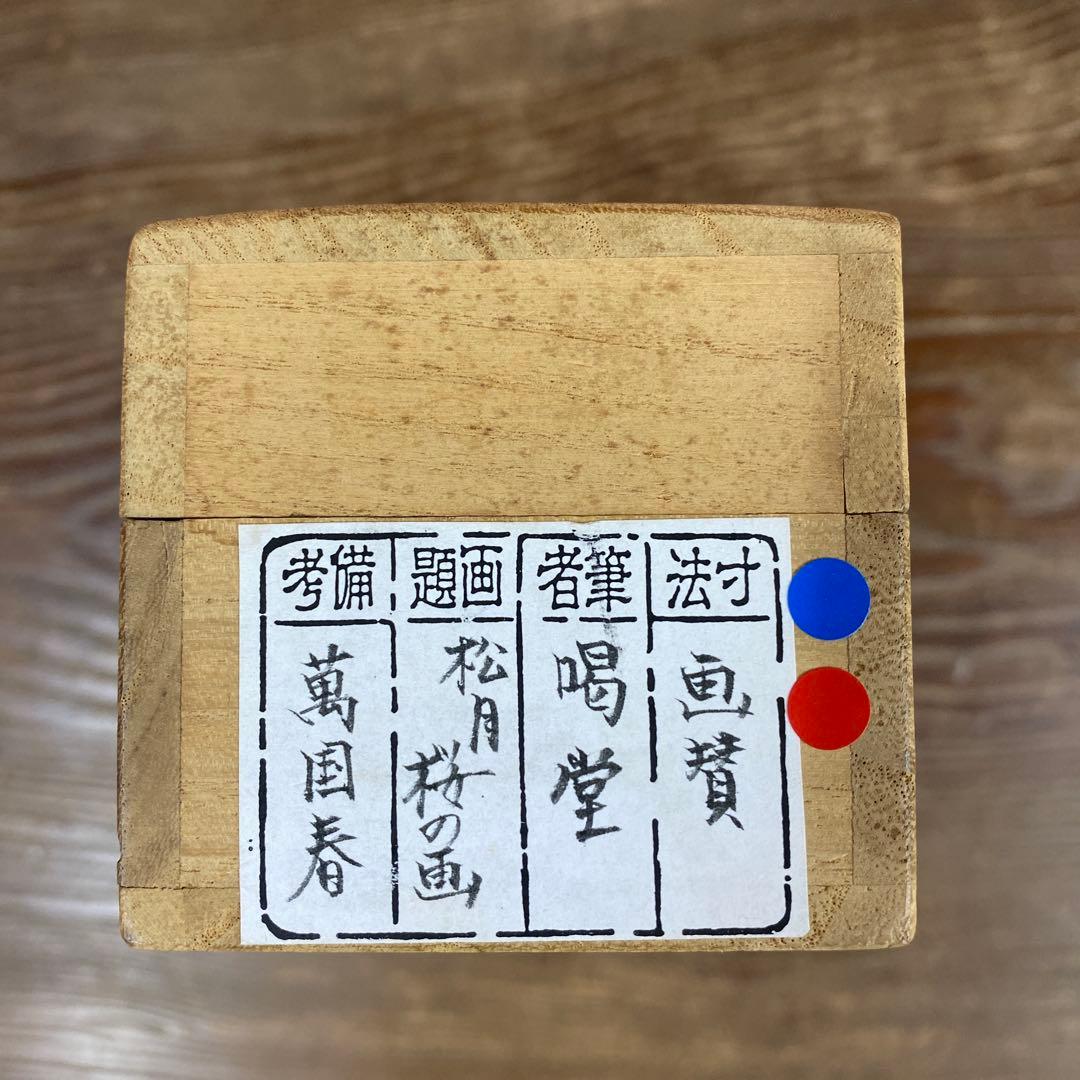 寸法
画賛
筆者
喝堂
画題
松月
桜の画
備考
萬国春